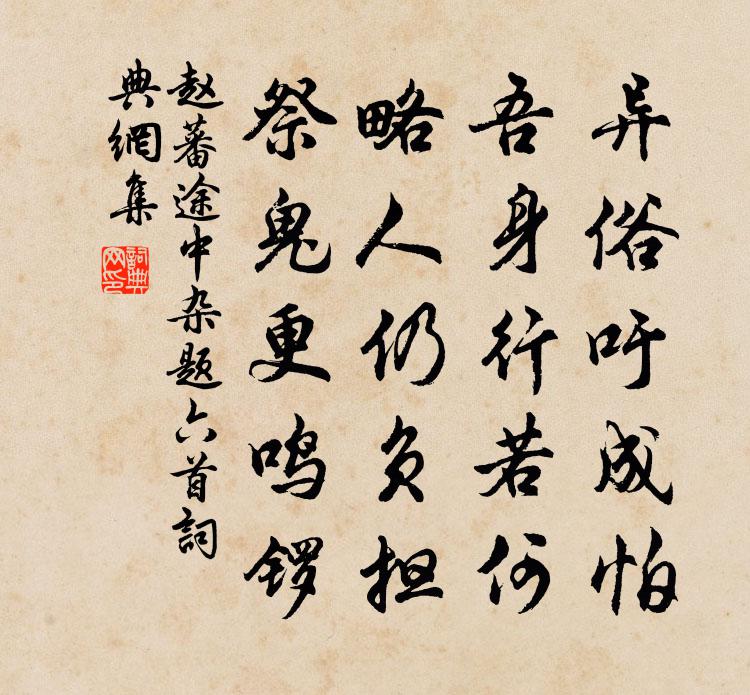 异俗吁成怕
吾身行若何
略人仍负担
祭鬼更鸣锣
赵蕃途中杂题六首詞
典網集
詞典
网印